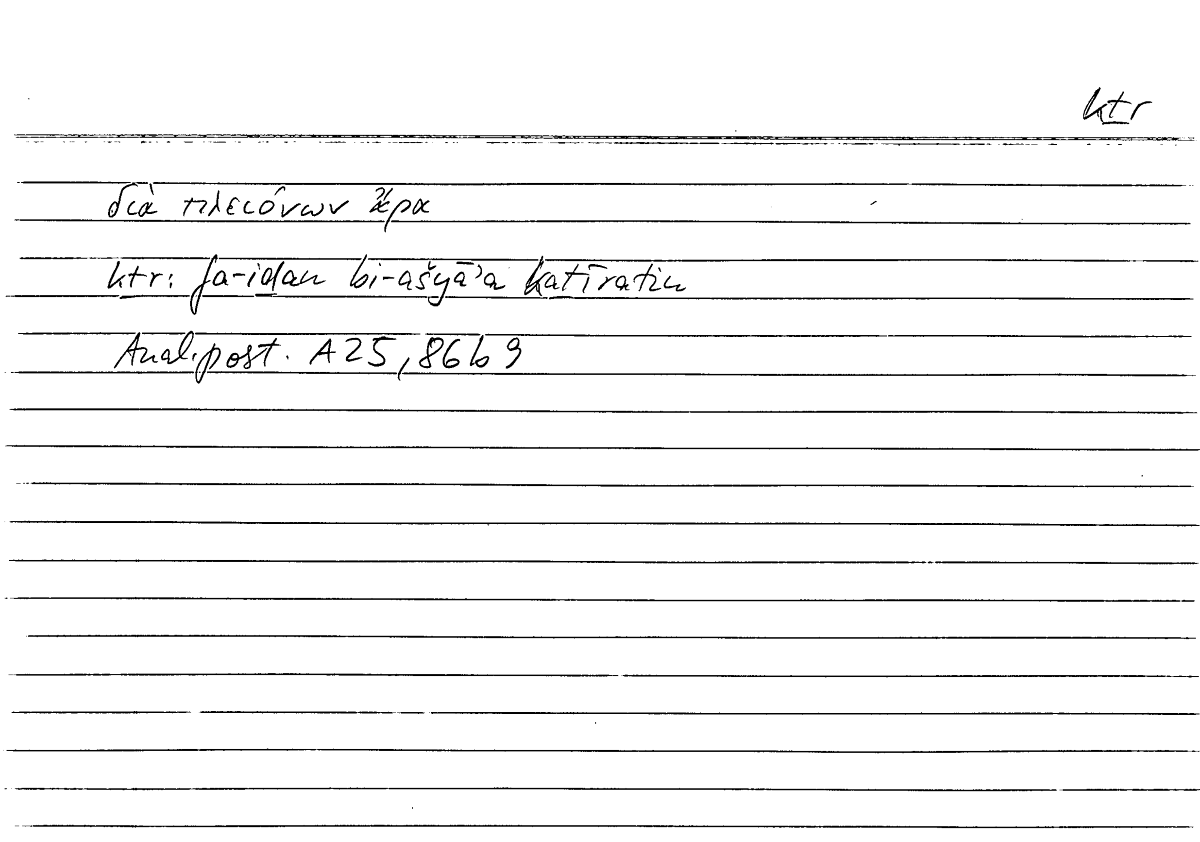 kṯr
διὰ πλειόνων ἄρα
kṯr: fa-iḏan bi-ašyāʾa kaṯīratin
Anal. post. A 25, 86b9